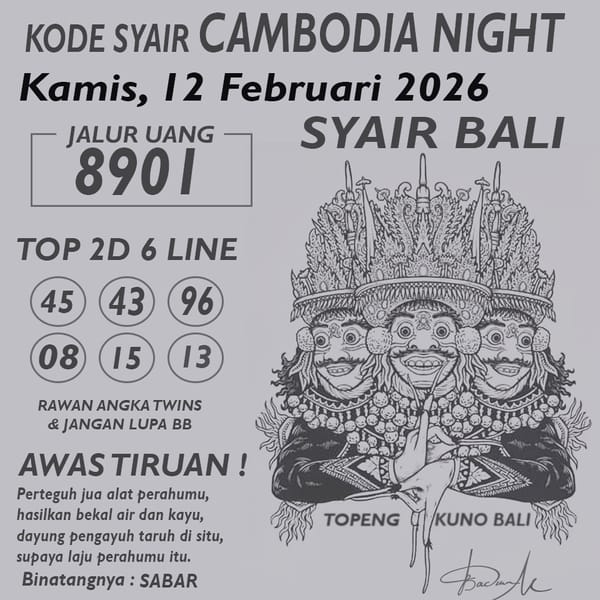 KODE SYAIR CAMBODIA NIGHT
Kamis, 12 Februari 2026
JALUR UANG
8901
SYAIR BALI
TOP 2D 6 LINE
45 43 96
08 15 13
RAWAN ANGKA TWINS
& JANGAN LUPA BB
AWAS TIRUAN !
Perteguh jua alat perahumu,
hasilkan bekal air dan kayu,
dayung pengayuh taruh di situ,
supaya laju perahumu itu.
Binatangnya : SABAR
TOPENG KUNO BALI